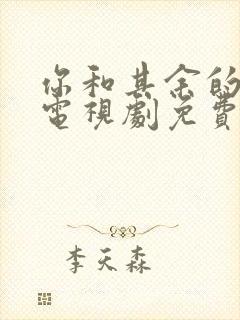 你和其余的
電視劇免費
李天森